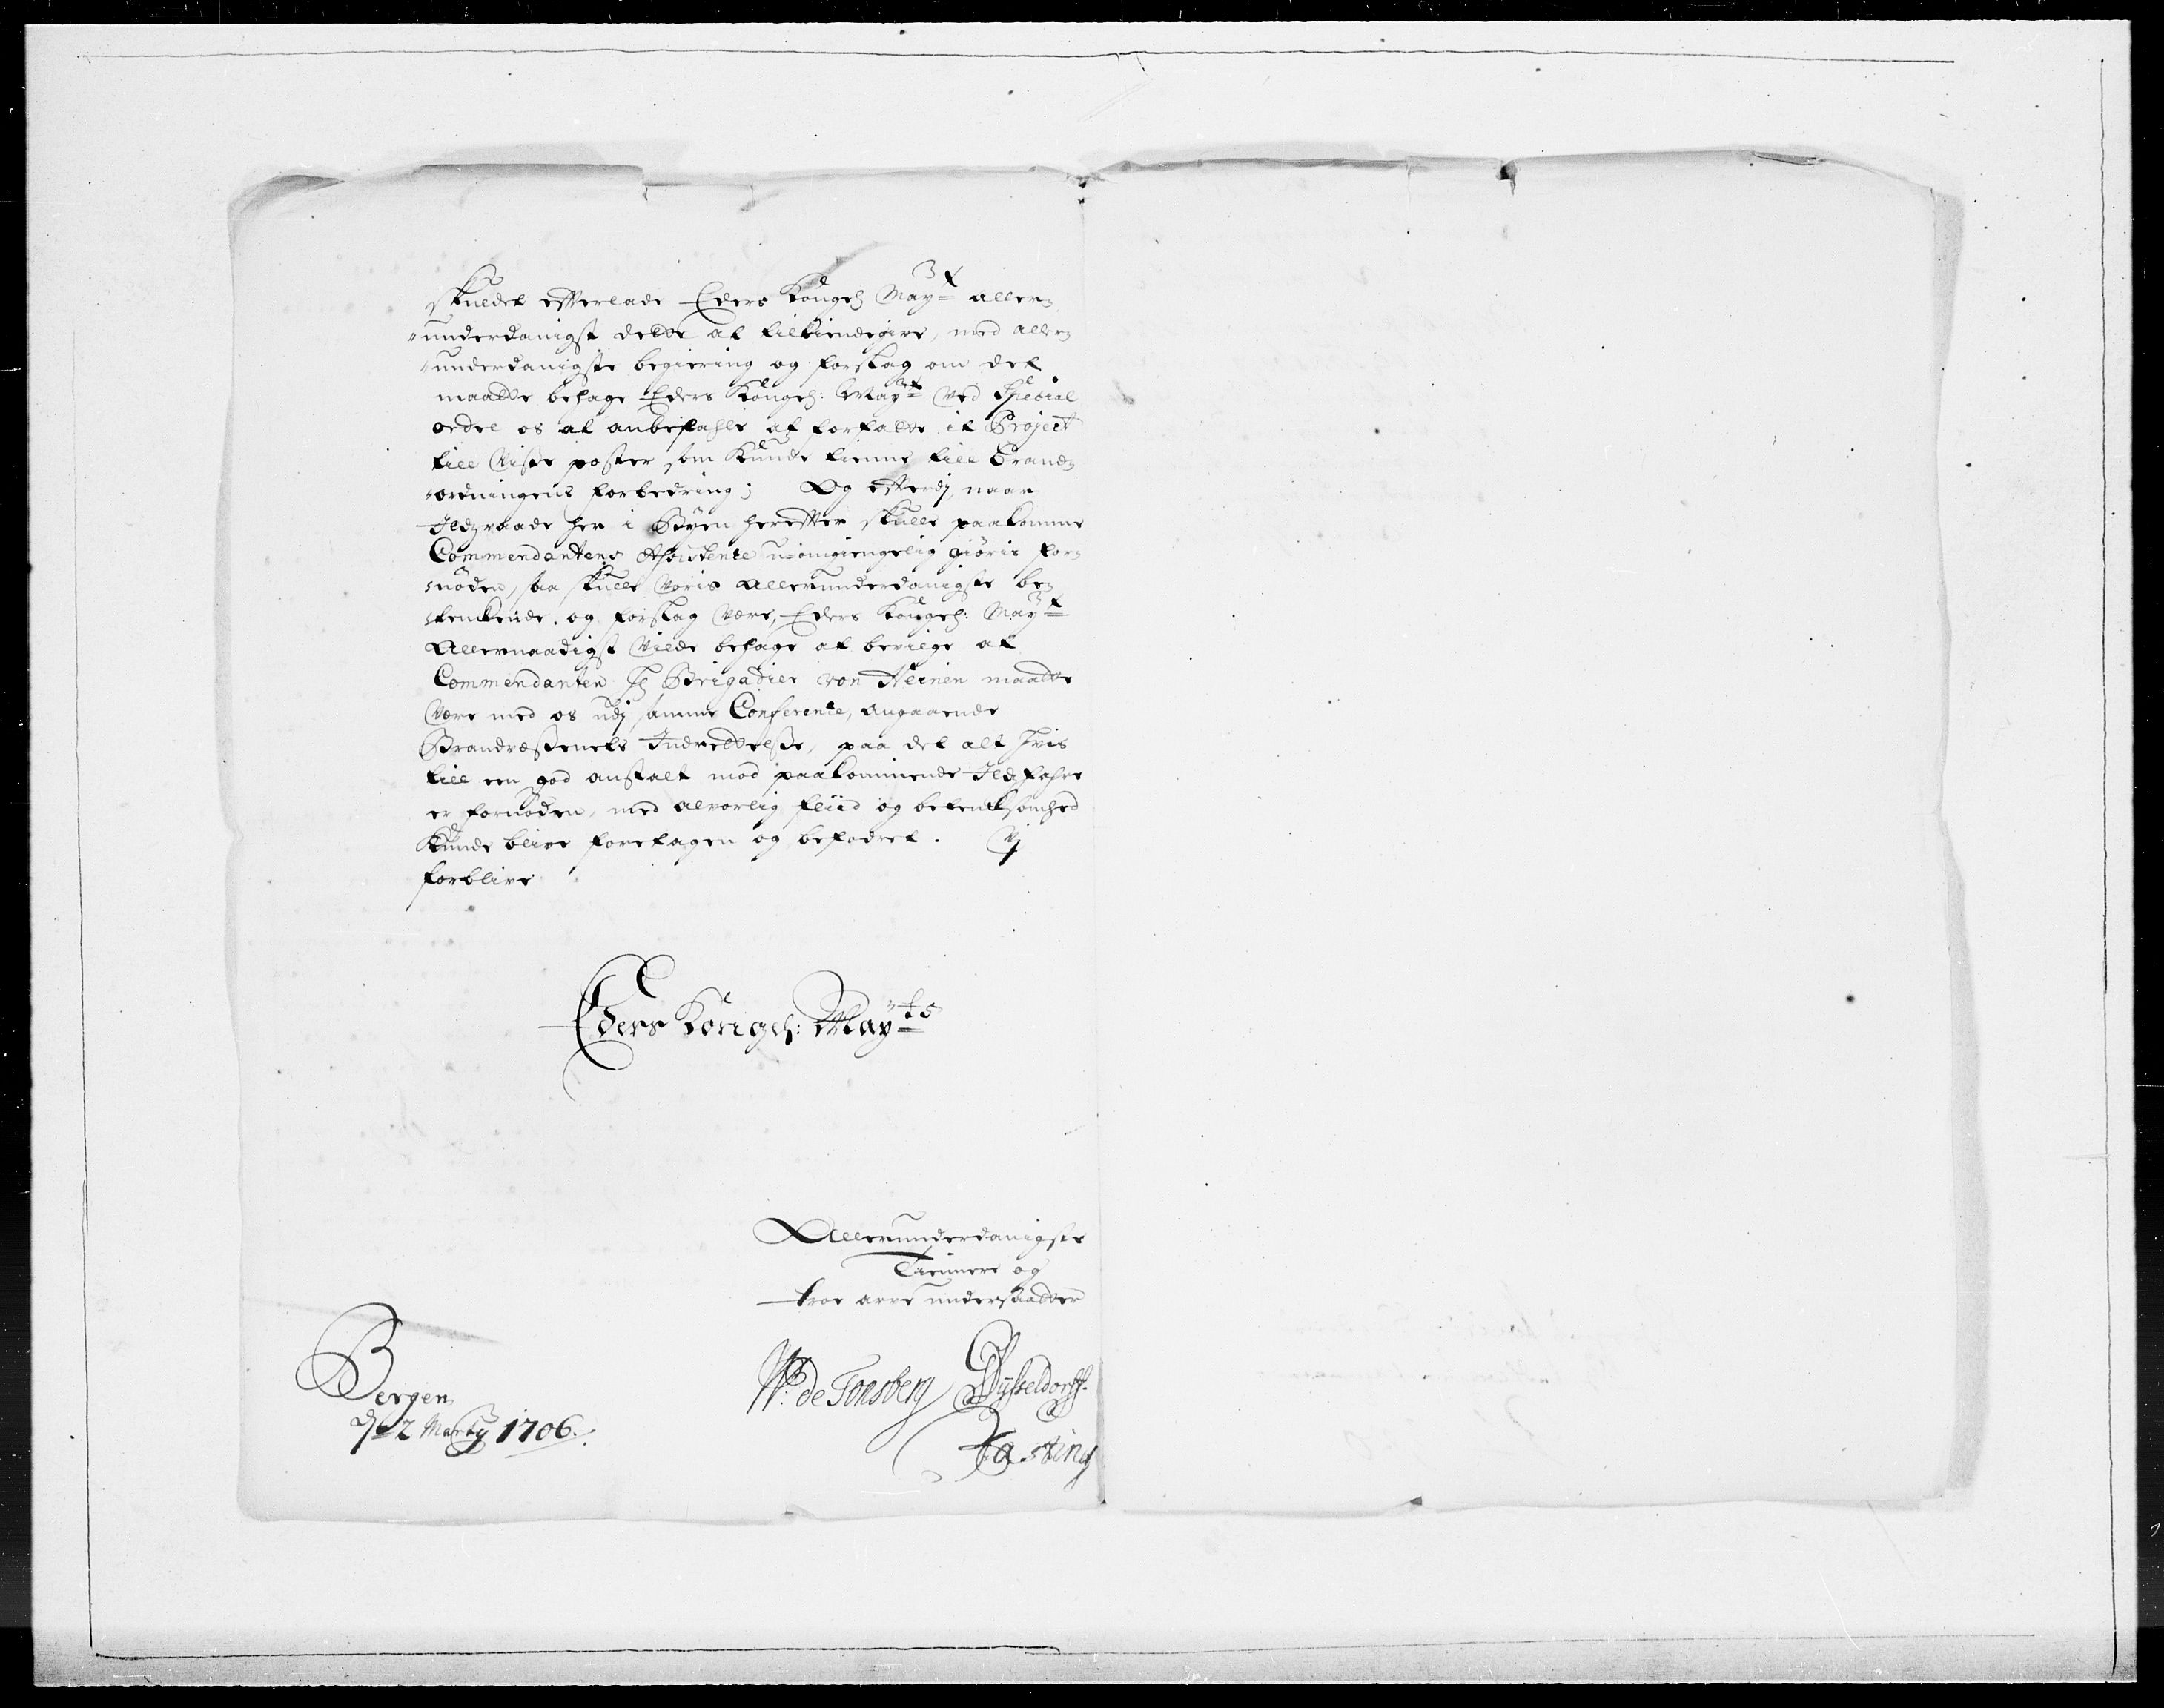 skuldet efterlade Eders Kongl May:t aller-
underdanigst dette at tilkiendegive, med aller-
underdanigste begiering og forslag om det
maatte behage Eders Kongel: May:t ved Special
ordre os at anbefahle at forfatte it Project
till visse poster som kunde tienne till Brand-
ordningens forbedring; Og efterdj naar
Ildzvaade her i Byen herefter skulle paakomme
Commendantens Assistence uomgiengelig giøris for-
nøden, saa skulle voris allerunderdanigste be-
tenkende og forslag være, Eders Kongel: May:t
Allernaadigst vilde behage at bevilge at
Commendanten Hr Brigadier von Heinen maatte
være med os udj samme Conference, angaaende
Brandvæssenets Indrettelsse, paa det alt hvis
till een god anstalt mod paakommende Ildzfahre
er fornøden, med alvorlig fliid og betenksomhed
kunde blive foretagen og befodret. Vj
forblive
Eders Kongel: May:ts
Allerunderdanigste
Tiennere og
troe arve undersaatter
Bergen
d 2 Marty 1706.
W: de Tonsberg Dysseldorff.
Fasting